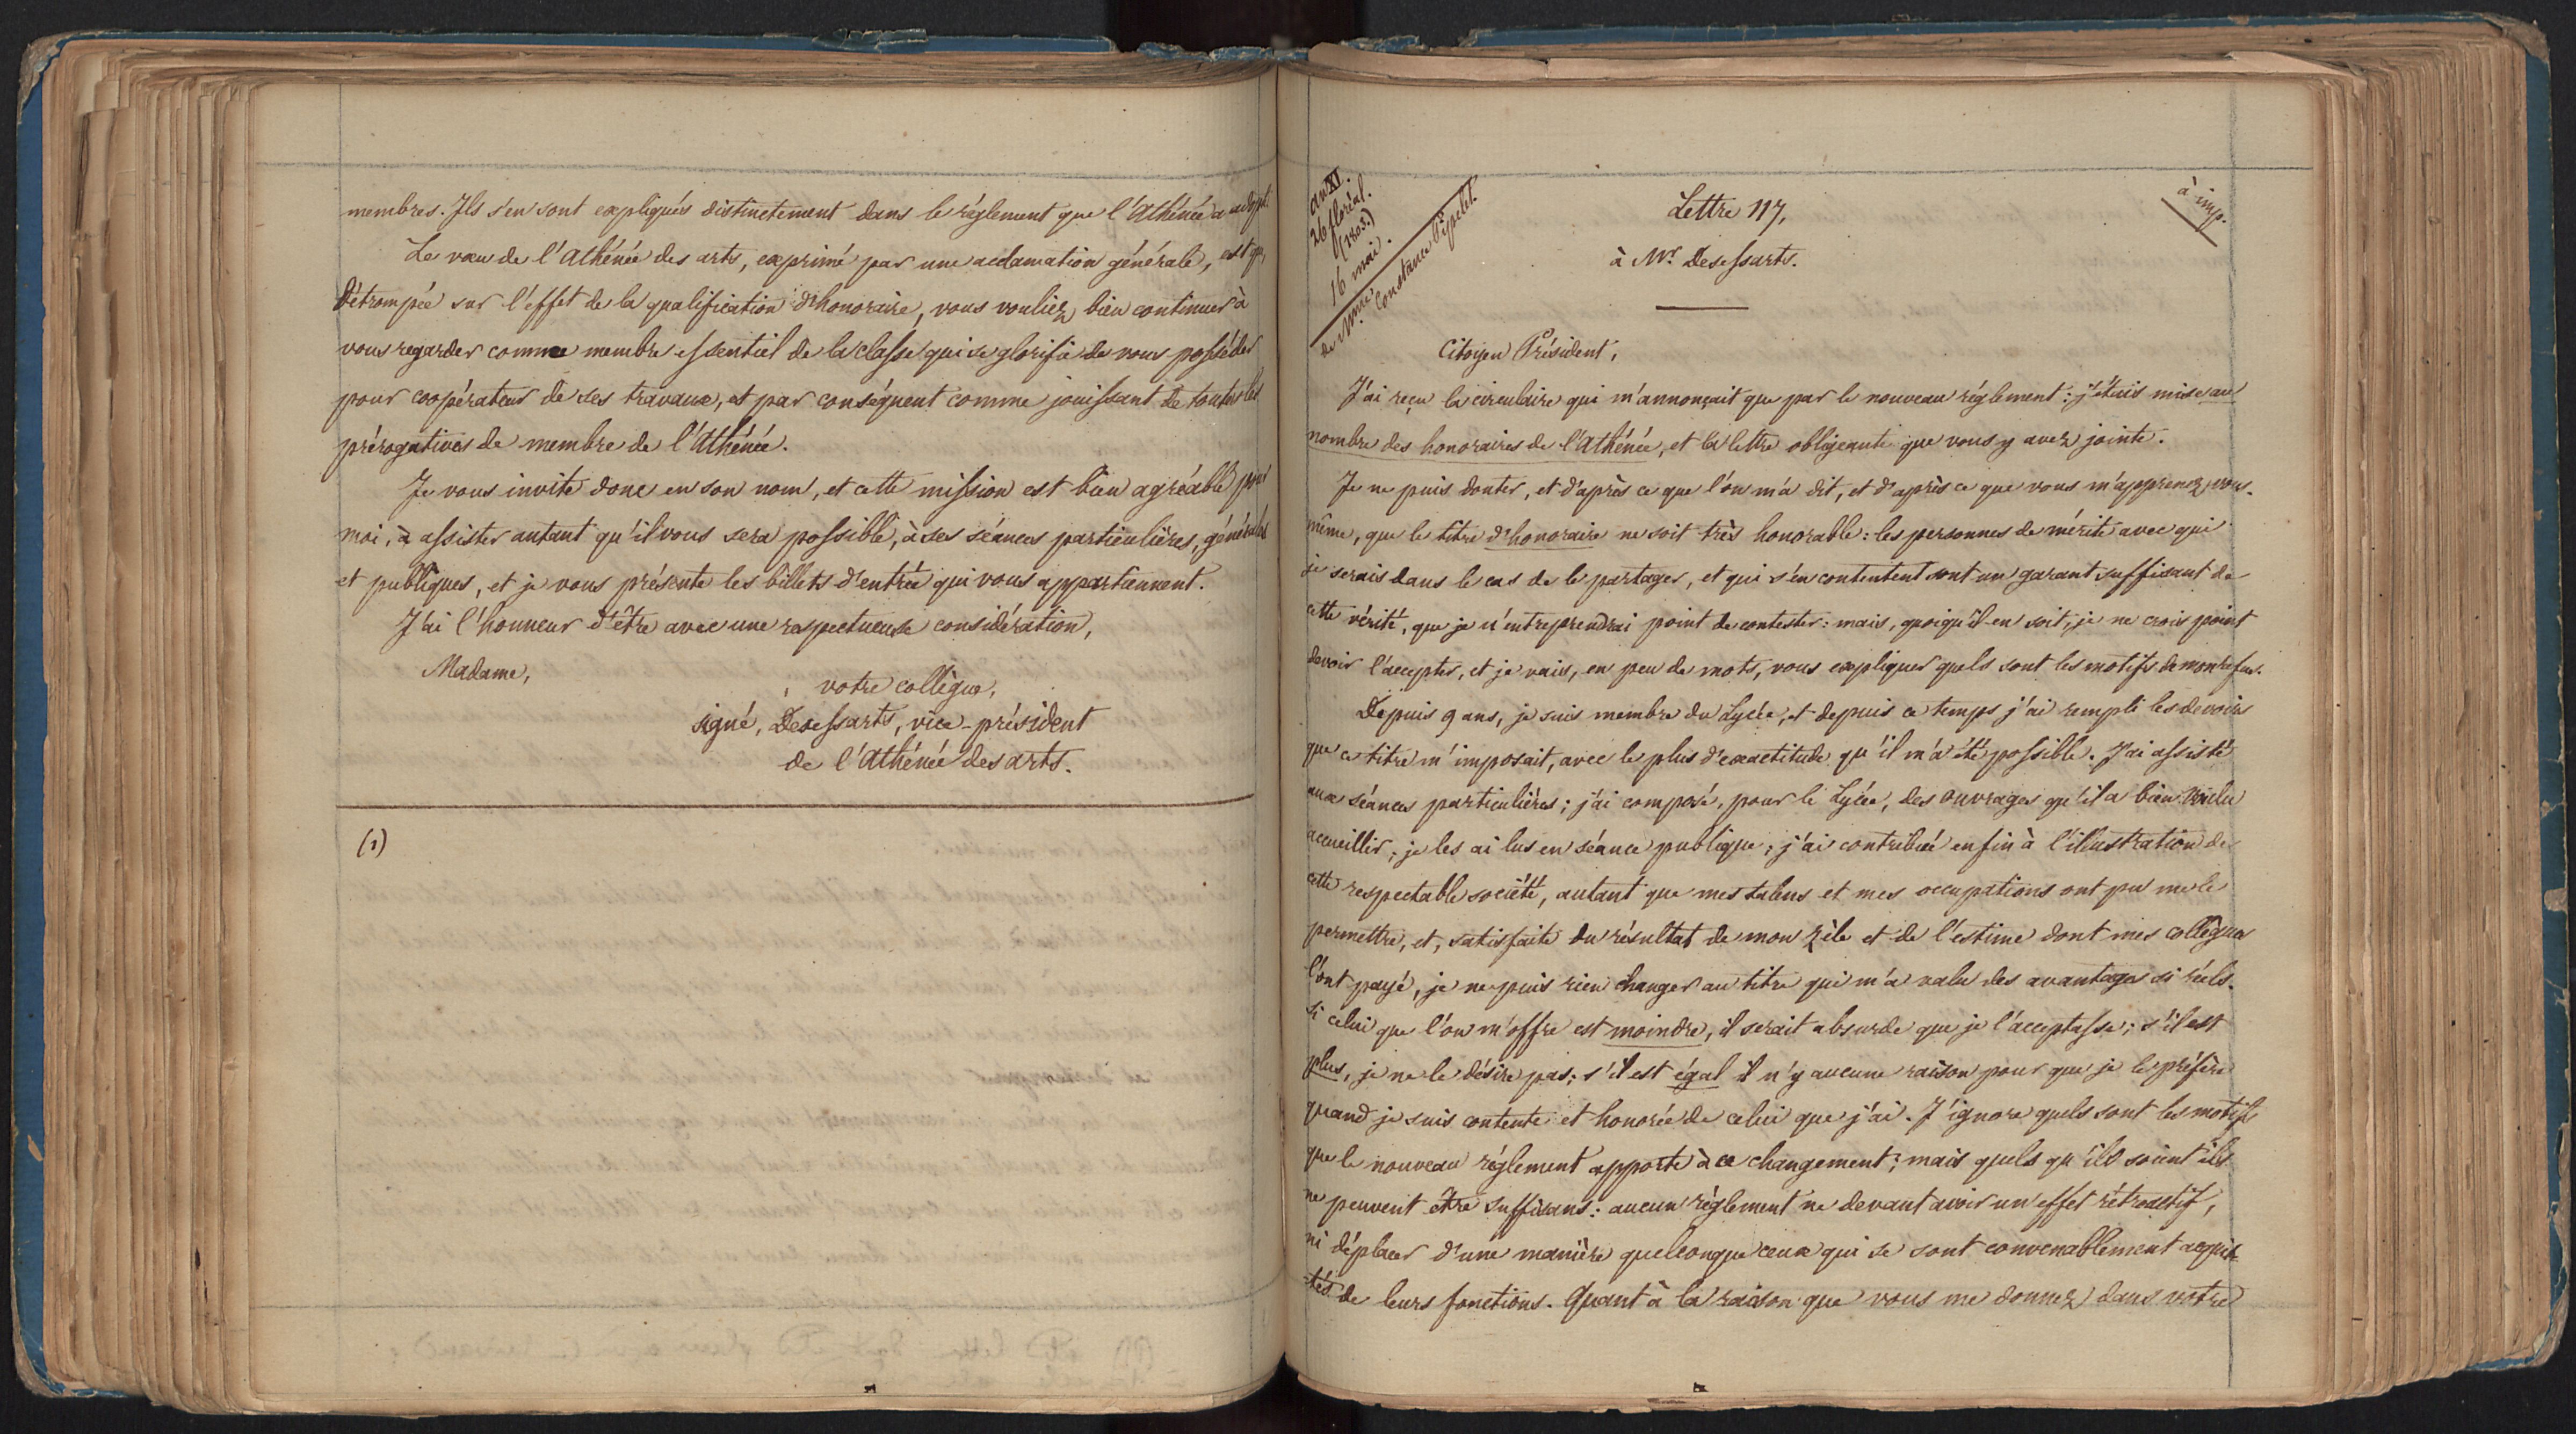 membres. Ils s'en sont expliqués distinctement dans le réglement que l'Athénée a adopt.
Le vœu de l'Athénée des arts, exprimé par une acclamation générale, est que,
Détrompée sur l'effet de la qualification d'honoraire, vous vouliez bien continuer à
vous regarder comme membre essentiel de la classe qui se glorifie de vous posséder
pour coopérateur de ses travaux, et par conséquent comme jouissant de toutes les
prérogatives de membre de l'Athénée.
Je vous invite donc en son nom, et cette mission est bien agréable pour
moi, à assister autant qu'il vous sera possible, à ses séances particulières, générales
et publiques, et je vous présente les billets d'entrée qui vous appartiennent.
J'ai l'honneur d'être avec une respectueuse considération,
Madame,
votre collègue,
signé, Desessarts, vice-président
de l'Athénée des arts.
(1)
an XI.
26 floréal.
(1803.)
16 mai.
de Mme Constance Pipelet.
à imp.
Lettre 117,
à Mr. Desessarts.
Citoyen Président,
J'ai reçu la circulaire qui m'annonçait que par le nouveau réglement: j'étais mise au
nombre des honoraires de l'Athénée, et la lettre obligeante que vous y avez jointe.
Je ne puis douter, et d'après ce que l'on m'a dit, et d'après ce que vous m'apprenez vous-
même, que le titre d'honoraire ne soit très honorable: les personnes de mérite avec qui
je serais dans le cas de le partager, et qui s'en contentent sont un garant suffisant de
cette vérité, que je n'entreprendrai point de contester: mais, quoiqu'il en soit, je ne crois point
devoir l'accepter, et je vais, en peu de mots, vous expliquer quels sont les motifs de mon refus.
Depuis 9 ans, je suis membre du Lycée, et depuis ce temps j'ai rempli les devoirs
que ce titre m'imposait, avec le plus d'exactitude qu'il m'a été possible. J'ai assisté
aux séances particulières; j'ai composé, pour le Lycée, des ouvrages qu'il a bien voulu
accueillir; je les ai lus en séance publique; j'ai contribué enfin à l'illustration de
cette respectable société, autant que mes talens et mes occupations ont pu me le
permettre, et, satisfaite du résultat de mon zèle et de l'estime dont mes collègues
l'ont payé, je ne puis rien changer au titre qui m'a valu des avantages si réels.
si celui que l'on m'offre est moindre, il serait absurde que je l'acceptasse; s'il est
plus, je ne le désire pas; s'il est égal il n'y aucune raison pour que je le préfère
quand je suis contente et honorée de celui que j'ai. J'ignore quels sont les motifs
que le nouveau réglement apporte à ce changement; mais quels qu'ils soient ils
ne peuvent être suffisans: aucun règlement ne devant avoir un effet rétroactif,
ni déplacer d'une manière quelconque ceux qui se sont convenablement acquit-
-tés de leurs fonctions. Quant à la raison que vous me donnez dans votre